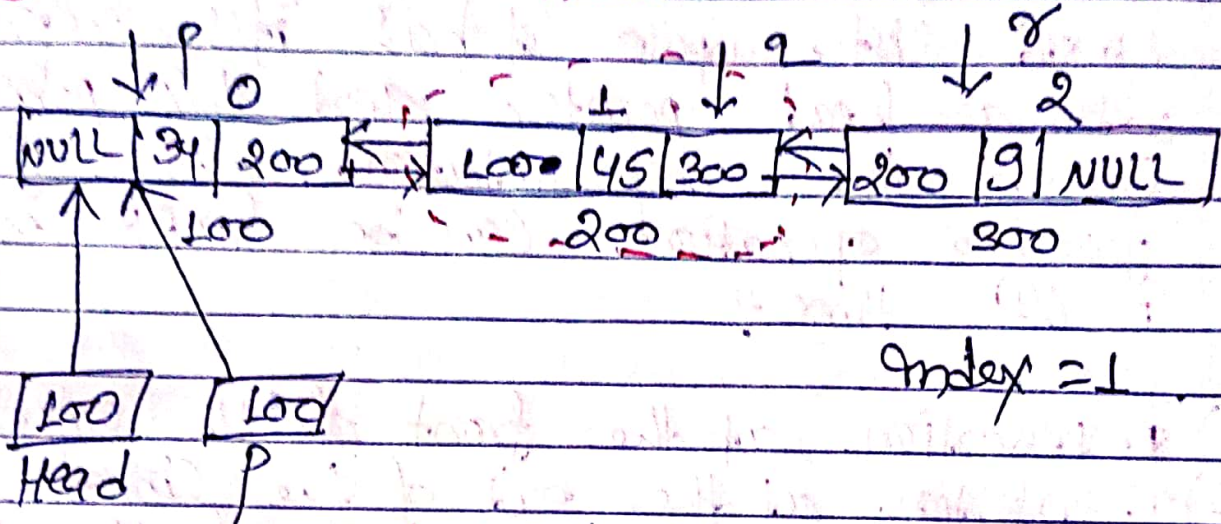 p q r
0 1 2
NULL 34 200 100 45 300 200 9 NULL
100 200 300
Index = 1
100 100
Head p